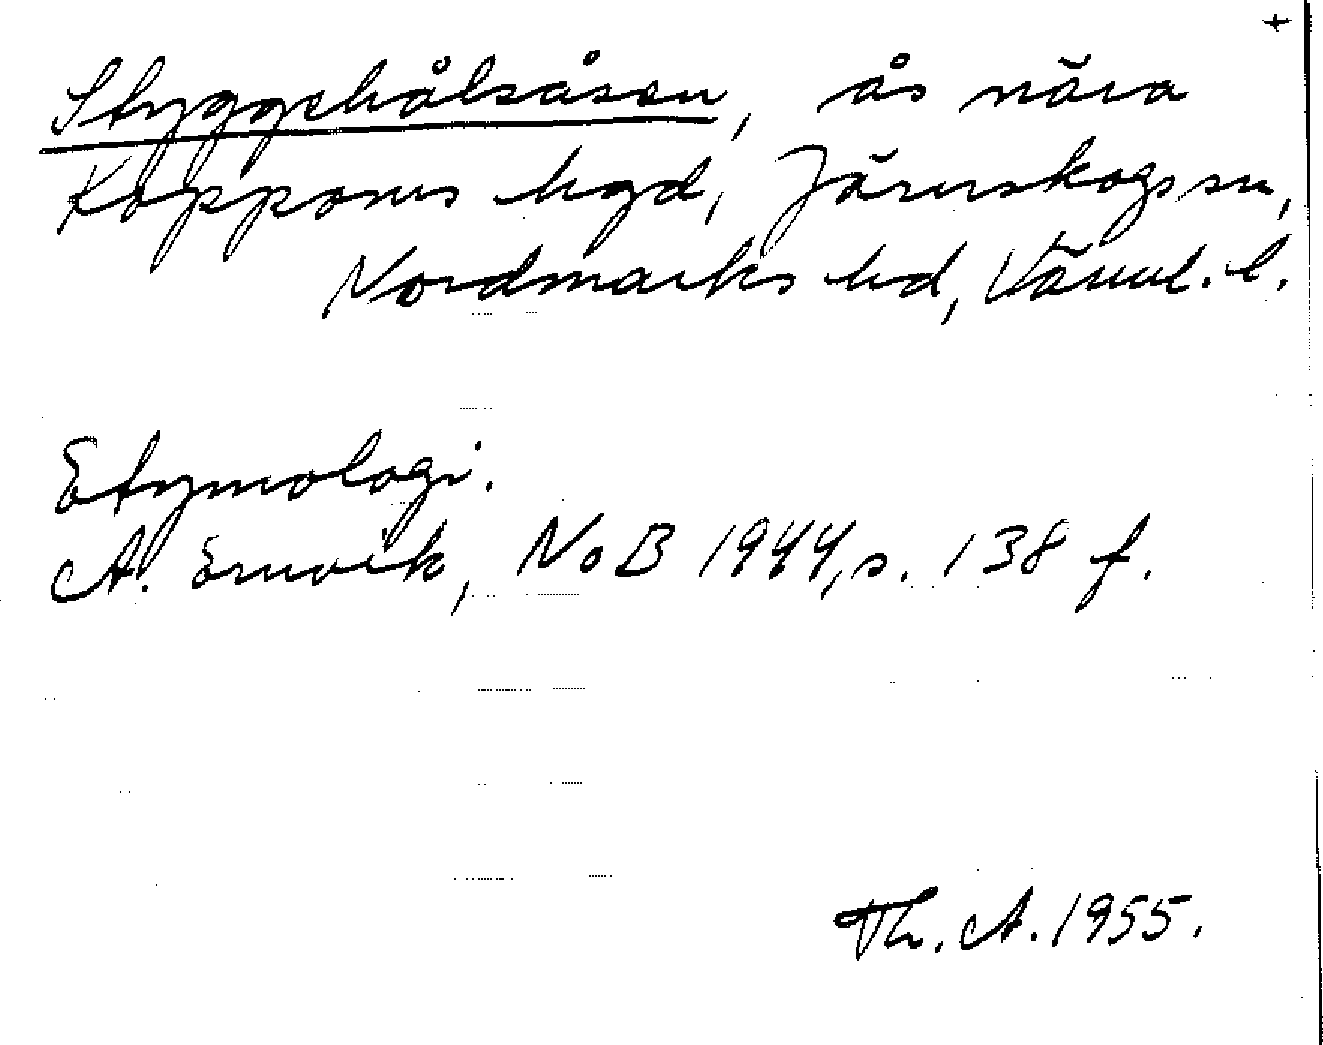 +
Styggehålsåsen, ås nära
Koppons hgd, Järnskogs sn,
Nordmarks hd, Värml. l.
Etymologi.
A. Ernvik, NoB 1944, s. 138 f.
Th. A. 1955.